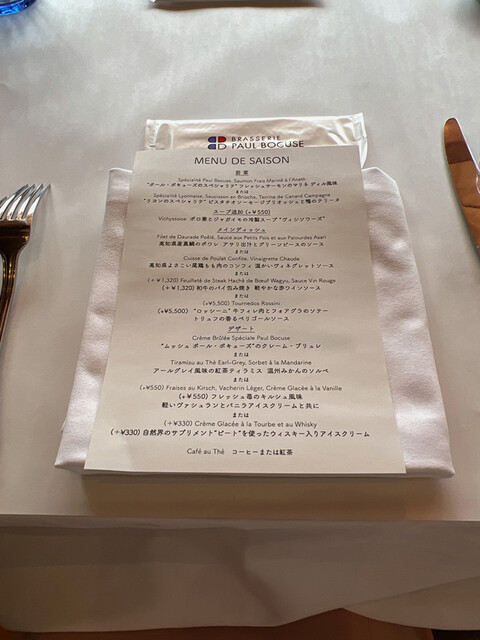 BRASSERIE
PAUL BOCUSE
MENU DE SAISON
前菜
Spécialité Paul Bocuse, Saumon Frais Mariné à l'Aneth
"ポール・ボキューズのスペシャリテ"フレッシュサーモンのマリネ ディル風味
または
Spécialité Lyonnaise, Saucisson en Brioche, Terrine de Canard Campagne
"リヨンのスペシャリテ" ピスタチオソーセージブリオッシュと鴨のテリーヌ
スープ追加 (+¥550)
Vichyssoise ポロ葱とジャガイモの冷製スープ "ヴィシソワーズ"
メインディッシュ
Filet de Daurade Poêlé, Sauce aux Petits Pois et aux Palourdes Asari
高知県産真鯛のポワレ アサリ出汁とグリーンピースのソース
または
Cuisse de Poulet Confite, Vinaigrette Chaude
高知県よさこい尾鶏もも肉のコンフィ 温かいヴィネグレットソース
または
(+¥1,320) Feuilleté de Steak Haché de Bœuf Wagyu, Sauce Vin Rouge
(+¥1,320) 和牛のパイ包み焼き 軽やかな赤ワインソース
または
(+¥5,500) Tournedos Rossini
(+¥5,500) "ロッシーニ" 牛フィレ肉とフォアグラのソテー
トリュフの香るペリゴールソース
デザート
Crème Brûlée Spéciale Paul Bocuse
"ムッシュ ポール・ボキューズ"のクレーム・ブリュレ
または
Tiramisu au Thé Earl-Grey, Sorbet à la Mandarine
アールグレイ風味の紅茶ティラミス 温州みかんのソルベ
または
(+¥550) Fraises au Kirsch, Vacherin Léger, Crème Glacée à la Vanille
(+¥550) フレッシュ苺のキルシュ風味
軽いヴァシュランとバニラアイスクリームと共に
または
(+¥330) Crème Glacée à la Tourbe et au Whisky
(+¥330) 自然界のサプリメント"ピート"を使ったウィスキー入りアイスクリーム
Café au Thé コーヒーまたは紅茶